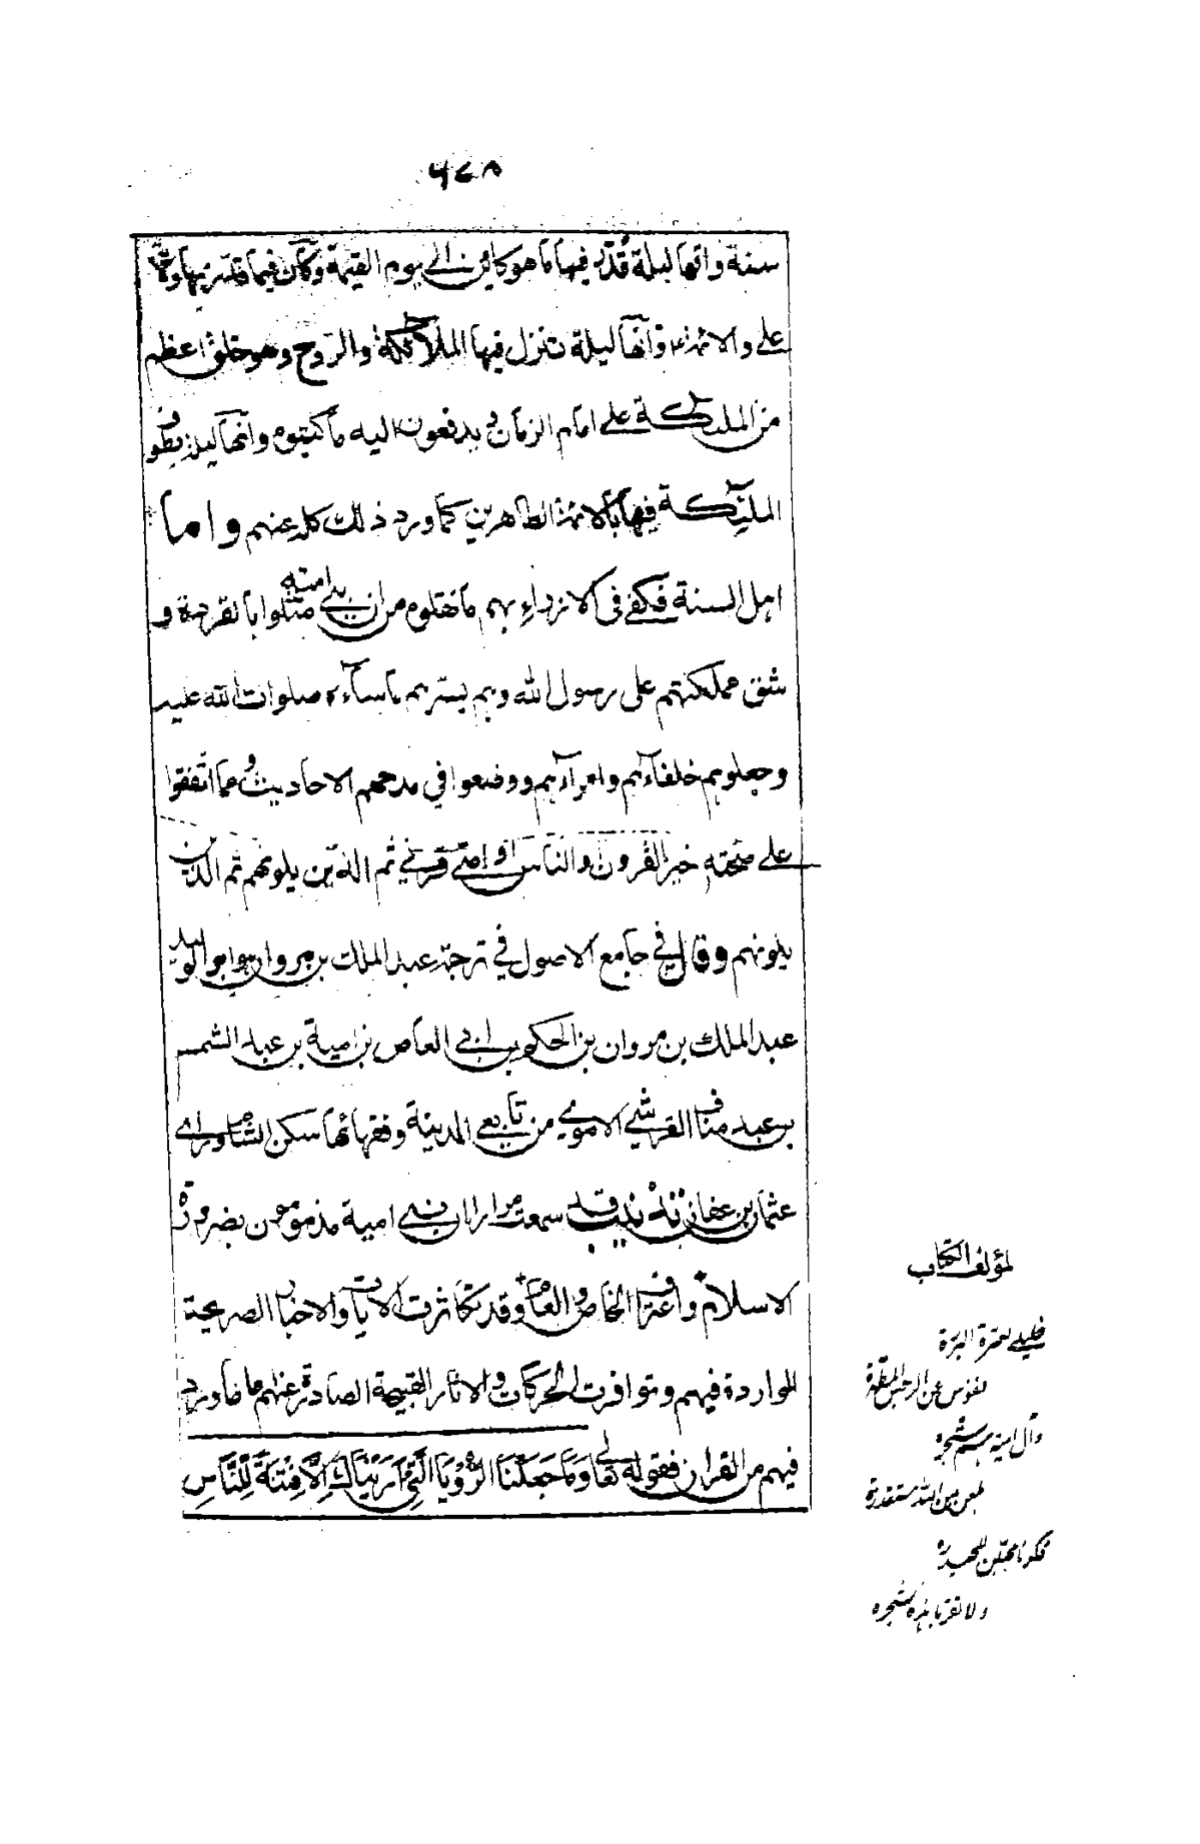 ٦٤٨
سنة وانها ليلة قُدّر فيها ما هو كائن الى يوم القيمة وكان فيما قدّر فيها ولاية
على والائمة ع وانها ليلة تنزل فيها الملائكة والروح وهو خلق اعظم
من الملئكة على امام الزمان و يدفعون اليه ما كتبوه وانها ليلة يطوف
الملئكة فيها بالائمة الطاهرين كما ورد ذلك كله عنهم واما
اهل السنة فكفى فى الازراء بهم ما نقلوه من ان بنى امية مثلوا بالقردة و
شق مملكتهم على رسول الله وبم يسترهم ما ساءه صلوات الله عليه
وجعلوهم خلفاءهم وامراءهم ووضعوا في مدحهم الاحاديث و مما اتفقوا
على صحته خير القرون والناس او امتى قرنى ثم الذين يلونهم ثم الذين
يلونهم وقال في جامع الاصول في ترجمة عبد الملك بن مروان هو ابو الوليد
عبد الملك بن مروان بن الحكم بن ابى العاص بن امية بن عبد الشمس
بن عبد مناف القرشي الاموي من تابعى المدينة وفقهائها سكن الشام وراى
عثمان بن عفان تذنيب قد سمعت مرارا ان بنى امية مذمومون بضرورة
الاسلام واعتراف الخاص والعام وقد تكاثرت الايات والاخبار الصريحة
الواردة فيهم وتوافرت الحركات والاثار القبيحة الصادرة عنهم اما ما ورد
فيهم من القران فقوله تعالى وَمَا جَعَلْنَا الرُّؤْيَا الَّتِى اَرَيْنَاكَ اِلَّا فِتْنَةً لِلنَّاسِ
لمؤلف الكتاب
خليلى لعترة البررة
نفوس عن الرجس المطهرة
وآل امية هم شجرة
لعن من الله مستقذرة
فكونا محبين للحيدرة
ولا تقربا هذه شجره